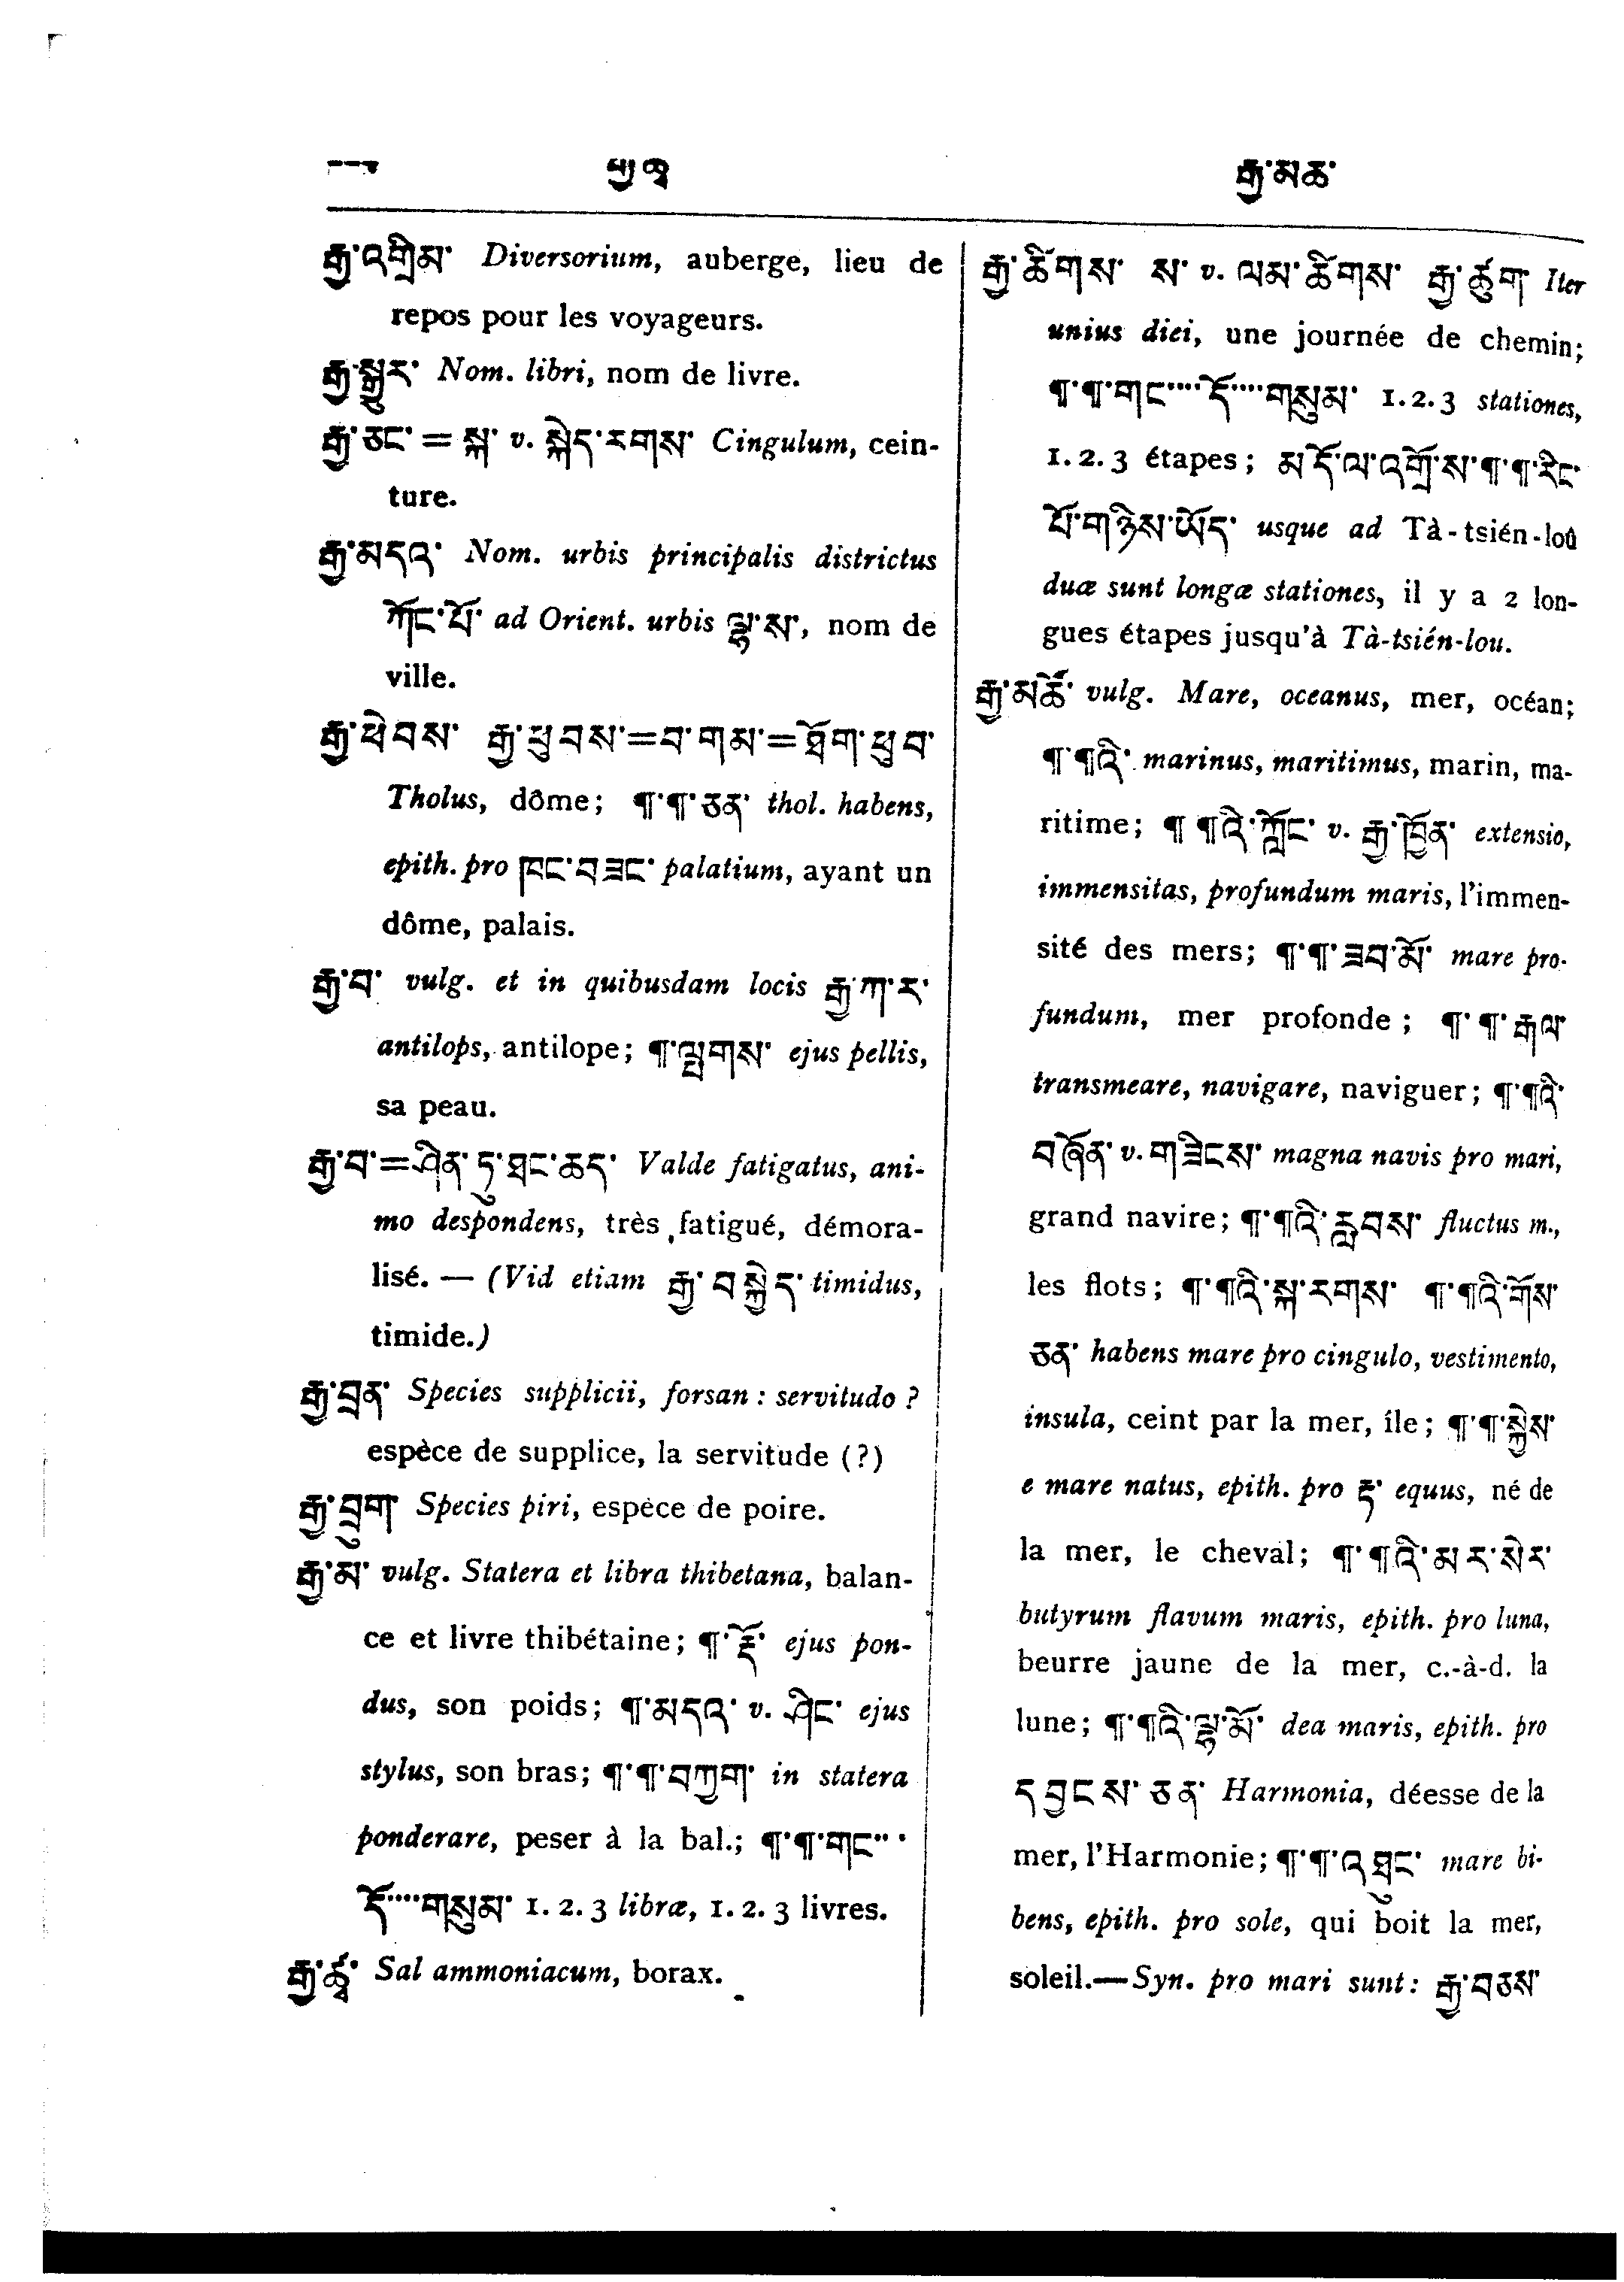 རྒྱ་མཚ་
རྒྱ་འགྲིམ་ Diversorium, auberge, lieu de
repos pour les voyageurs.
རྒྱ་སྒྱུར་ Nom. libri, nom de livre.
རྒྱ་ཅང་ = སྐ་ v. སྐེད་རགས་ Cingulum, cein-
ture.
རྒྱ་མདའ་ Nom. urbis principalis districtus
ཀོང་པོ་ ad Orient. urbis ལྷ་ས་, nom de
ville.
རྒྱ་ཕེབས་ རྒྱ་ཕུབས་=བ་གམ་=ཐོག་ཕུབ་
Tholus, dôme; ¶་¶་ཅན་ thol. habens,
epith. pro ཁང་བཟང་ palatium, ayant un
dôme, palais.
རྒྱ་བ་ vulg. et in quibusdam locis རྒྱ་ཀ་ར་
antilops, antilope; ¶་ལྤགས་ ejus pellis,
sa peau.
རྒྱ་བ་=ཤིན་ཏུ་ཐང་ཆད་ Valde fatigatus, ani-
mo despondens, très fatigué, démora-
lisé. — (Vid etiam རྒྱ་བསྐྱེད་ timidus,
timide.)
རྒྱ་བྲན་ Species supplicii, forsan : servitudo ?
espèce de supplice, la servitude (?)
རྒྱ་བྲུག་ Species piri, espèce de poire.
རྒྱ་མ་ vulg. Statera et libra thibetana, balan-
ce et livre thibétaine; ¶་རྡོ་ ejus pon-
dus, son poids; ¶་མདའ་ v. ཤིང་ ejus
stylus, son bras; ¶་¶་བཀྱག་ in statera
ponderare, peser à la bal.; ¶་¶་གང་་་་
དོ་་་་གསུམ་ 1. 2. 3 libræ, 1. 2. 3 livres.
རྒྱ་ཚྭ་ Sal ammoniacum, borax.
རྒྱ་ཚིགས་ ས་ v. ལམ་ཚིགས་ རྒྱ་ཚུག་ Iter
unius diei, une journée de chemin;
¶་¶་གང་་་་དོ་་་་གསུམ་ 1. 2. 3 stationes,
1. 2. 3 étapes; མདོ་ལ་འགྲོ་ས་¶་¶་རིང་
པོ་གཉིས་ཡོད་ usque ad Tà-tsién-loû
duæ sunt longæ stationes, il y a 2 lon-
gues étapes jusqu'à Tà-tsién-lou.
རྒྱ་མཚོ་ vulg. Mare, oceanus, mer, océan;
¶་¶འི་ marinus, maritimus, marin, ma-
ritime; ¶་¶འི་ཀློང་ v. རྒྱ་ཁྱོན་ extensio,
immensitas, profundum maris, l'immen-
sité des mers; ¶་¶་ཟབ་མོ་ mare pro-
fundum, mer profonde; ¶་¶་རྒལ་
transmeare, navigare, naviguer; ¶་¶འི་
བཞོན་ v. གཟིངས་ magna navis pro mari,
grand navire; ¶་¶འི་རླབས་ fluctus m.,
les flots; ¶་¶འི་སྐ་རགས་ ¶་¶འི་གོས་
ཅན་ habens mare pro cingulo, vestimento,
insula, ceint par la mer, île; ¶་¶་སྐྱེས་
e mare natus, epith. pro རྟ་ equus, né de
la mer, le cheval; ¶་¶འི་མར་སེར་
butyrum flavum maris, epith. pro luna,
beurre jaune de la mer, c.-à-d. la
lune; ¶་¶འི་ལྷ་མོ་ dea maris, epith. pro
དབྱངས་ཅན་ Harmonia, déesse de la
mer, l'Harmonie; ¶་¶་འཐུང་ mare bi-
bens, epith. pro sole, qui boit la mer,
soleil.—Syn. pro mari sunt: རྒྱ་བཅས་